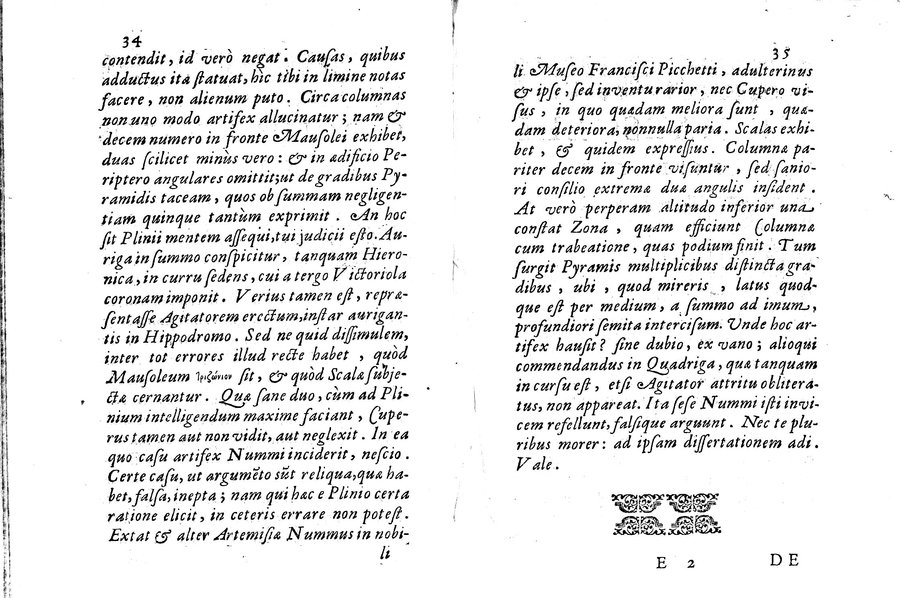 34
contendit, id verò negat. Cauſas, quibus
adductus ita ſtatuat, hìc tibi in limine notas
facere, non alienum puto. Circa columnas
non uno modo artifex allucinatur; nam &
decem numero in fronte Mauſolei exhibet,
duas ſcilicet minùs vero: & in ædificio Pe-
riptero angulares omittit; ut de gradibus Py-
ramidis taceam, quos ob ſummam negligen-
tiam quinque tantùm exprimit. An hoc
ſit Plinii mentem aſſequi, tui judicii eſto. Au-
riga in ſummo conſpicitur, tanquam Hiero-
nica, in curru ſedens, cui a tergo Victoriola
coronam imponit. Verius tamen eſt, repræ-
ſentaſſe Agitatorem erectum, inſtar aurigan-
tis in Hippodromo. Sed ne quid diſſimulem,
inter tot errores illud recte habet, quòd
Mauſoleum τριζώνιον ſit, & quòd Scalæ ſubje-
ctæ cernantur. Quæ ſane duo, cùm ad Pli-
nium intelligendum maxime faciant, Cupe-
rus tamen aut non vidit, aut neglexit. In ea
quo caſu artifex Nummi inciderit, neſcio.
Certe caſu, ut argumẽto sũt reliqua, quæ ha-
bet, falſa, inepta; nam qui hæc e Plinio certa
ratione elicit, in ceteris errare non poteſt.
Extat & alter Artemiſiæ Nummus in nobi-
li
35
li Muſeo Franciſci Picchetti, adulterinus
& ipſe, ſed inventu rarior, nec Cupero vi-
ſus, in quo quædam meliora ſunt, quæ-
dam deteriora, nonnulla paria. Scalas exhi-
bet, & quidem expreſſius. Columnæ pa-
riter decem in fronte viſuntur, ſed ſanio-
ri conſilio extremæ duæ angulis inſident.
At verò perperam altitudo inferior una
conſtat Zona, quam efficiunt Columnæ
cum trabeatione, quas podium finit. Tum
ſurgit Pyramis multiplicibus diſtincta gra-
dibus, ubi, quod mireris, latus quod-
que eſt per medium, a ſummo ad imum,
profundiori ſemita interciſum. Unde hoc ar-
tifex hauſit? ſine dubio, ex vano; alioqui
commendandus in Quadriga, quæ tanquam
in curſu eſt, etſi Agitator attritu oblitera-
tus, non appareat. Ita ſeſe Nummi iſti invi-
cem refellunt, falſique arguunt. Nec te plu-
ribus morer: ad ipſam diſſertationem adi.
Vale.
E 2
DE